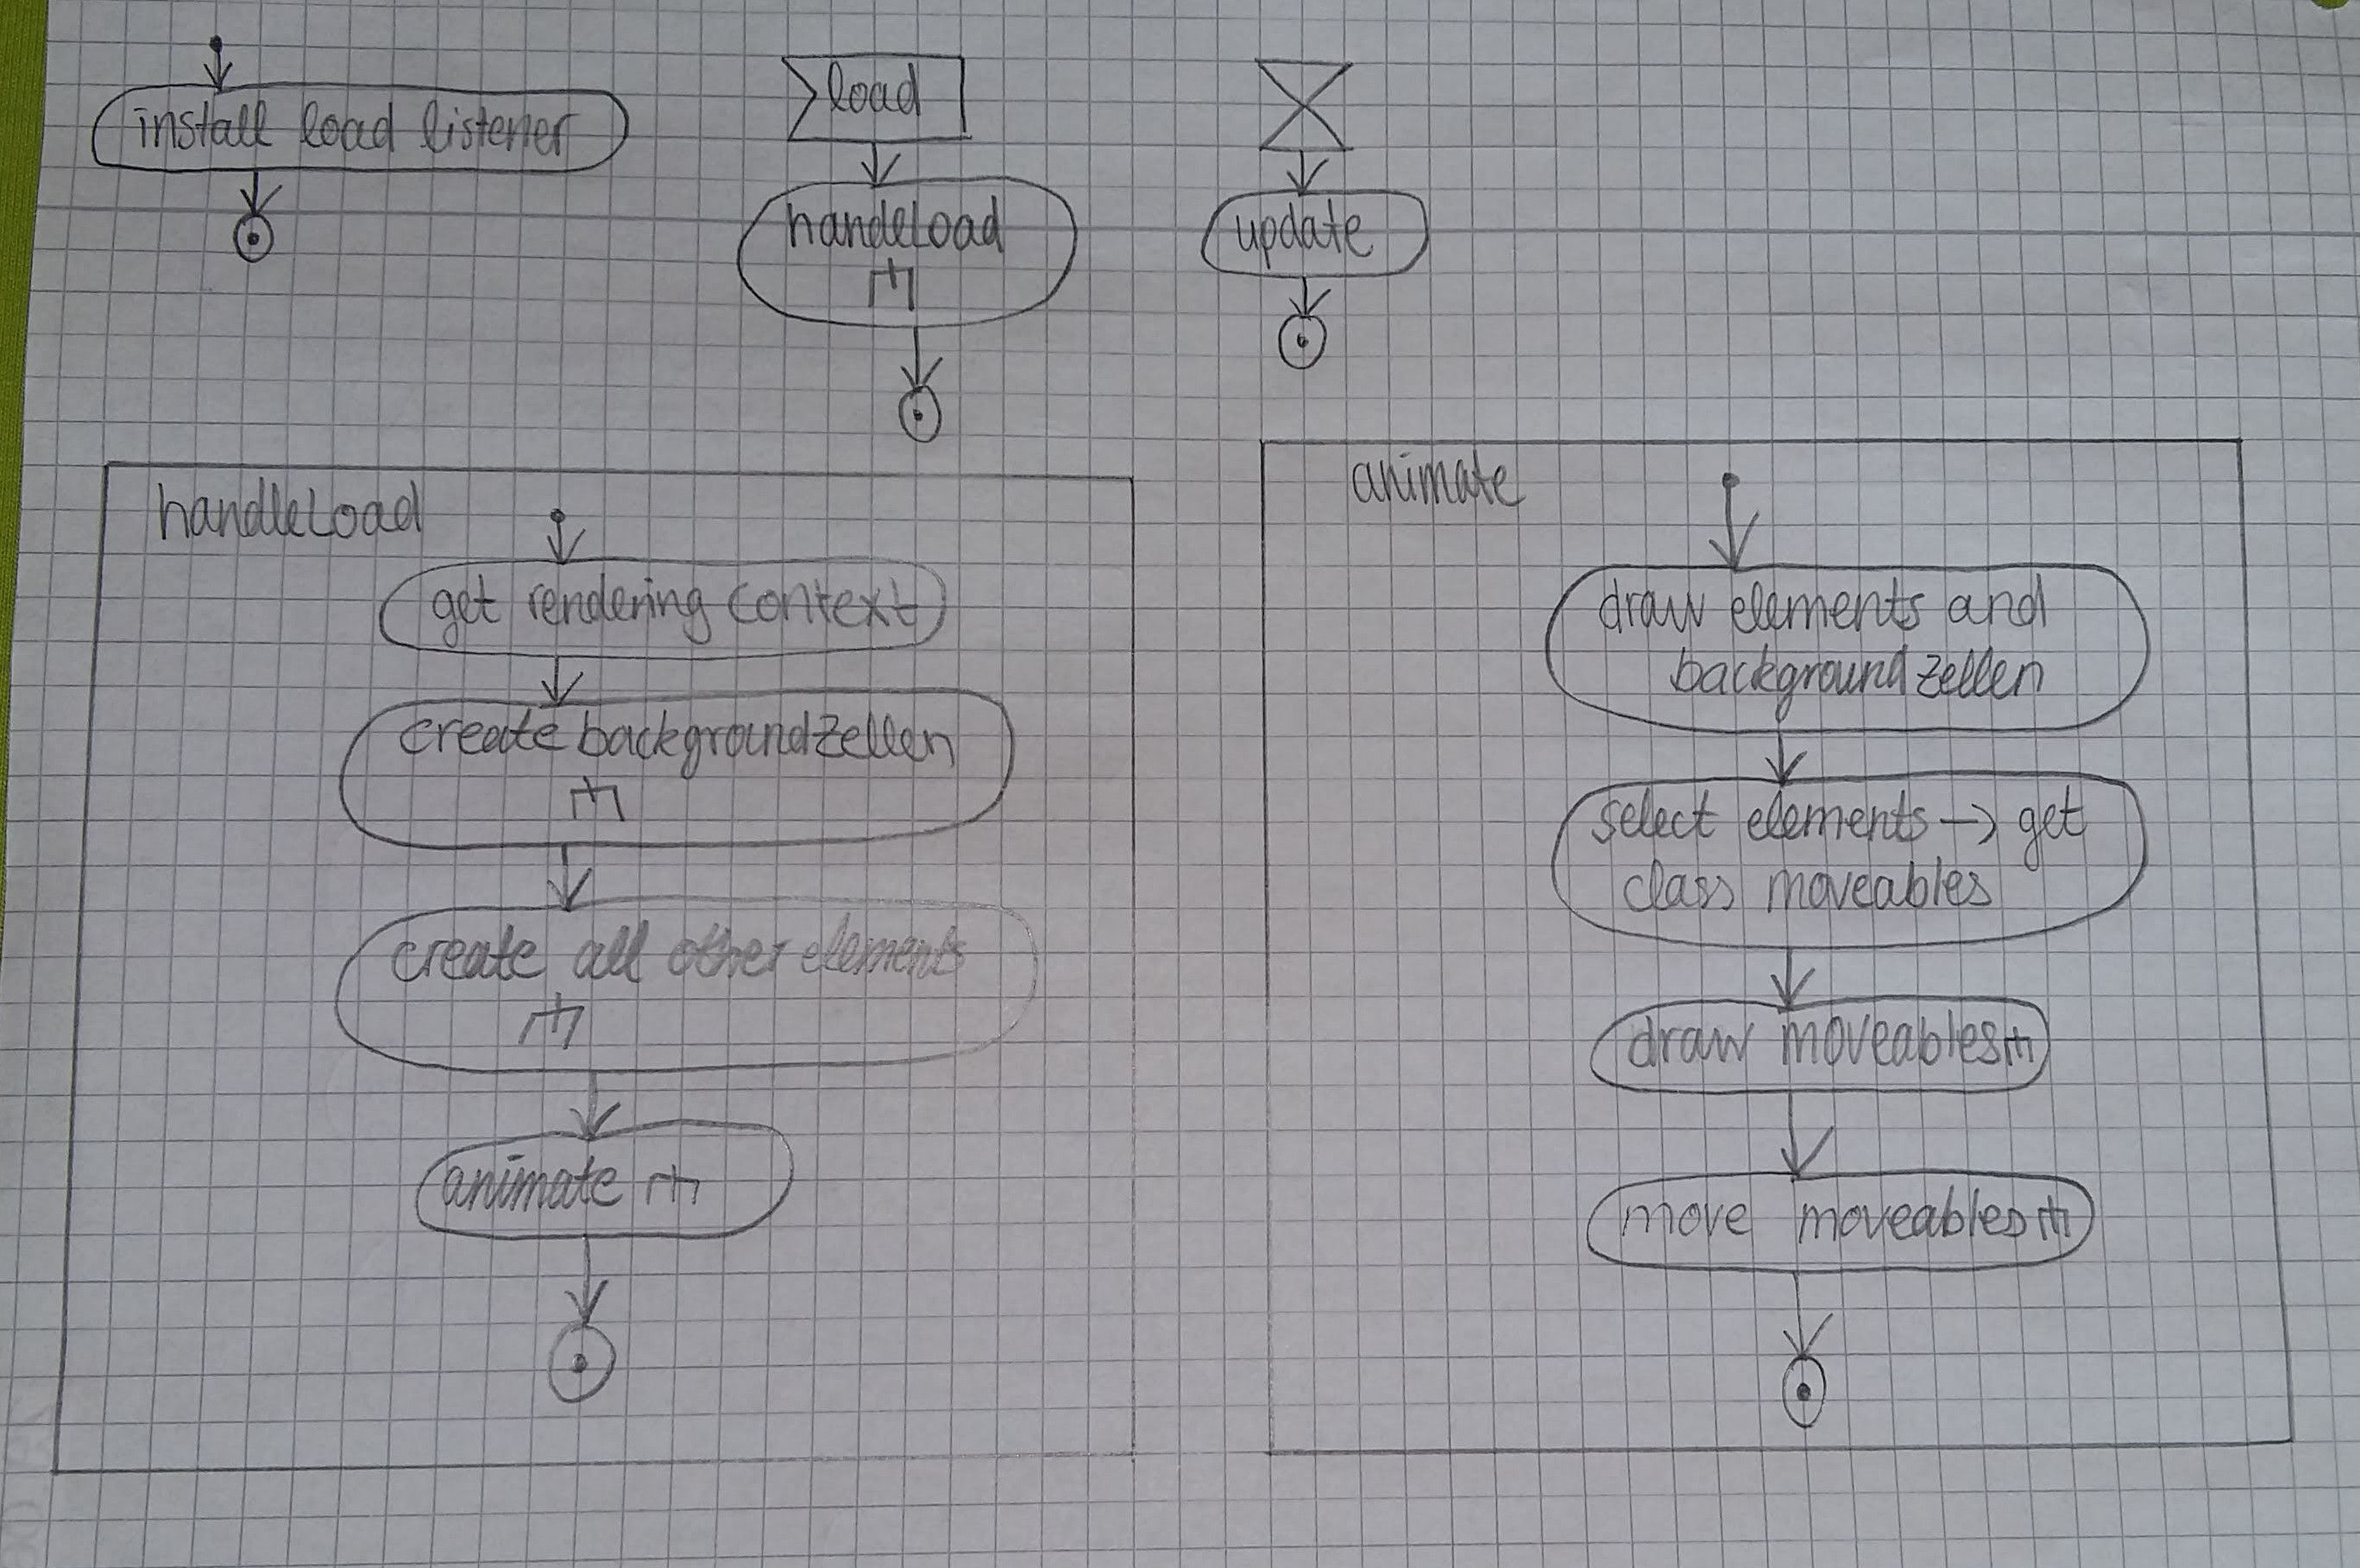 install load listener
load
handleLoad
update
handleLoad
get rendering context
create backgroundzellen
create all other elements
animate
animate
draw elements and
background zellen
select elements → get
class moveables
draw moveables
move moveables